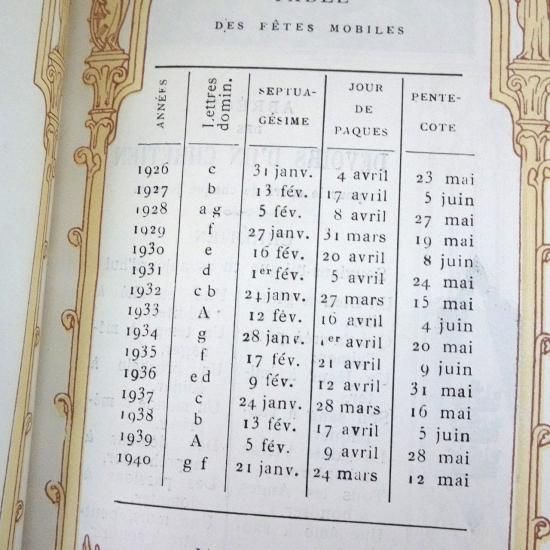 TABLE
DES FÊTES MOBILES
ANNÉES | Lettres domin. | SEPTUA-GÉSIME | JOUR DE PAQUES | PENTE-COTE
1926 c 31 janv. 4 avril 23 mai
1927 b 13 fév. 17 avril 5 juin
1928 a g 5 fév. 8 avril 27 mai
1929 f 27 janv. 31 mars 19 mai
1930 e 16 fév. 20 avril 8 juin
1931 d 1er fév. 5 avril 24 mai
1932 c b 24 janv. 27 mars 15 mai
1933 A 12 fév. 16 avril 4 juin
1934 g 28 janv. 1er avril 20 mai
1935 f 17 fév. 21 avril 9 juin
1936 e d 9 fév. 12 avril 31 mai
1937 c 24 janv. 28 mars 16 mai
1938 b 13 fév. 17 avril 5 juin
1939 A 5 fév. 9 avril 28 mai
1940 g f 21 janv. 24 mars 12 mai